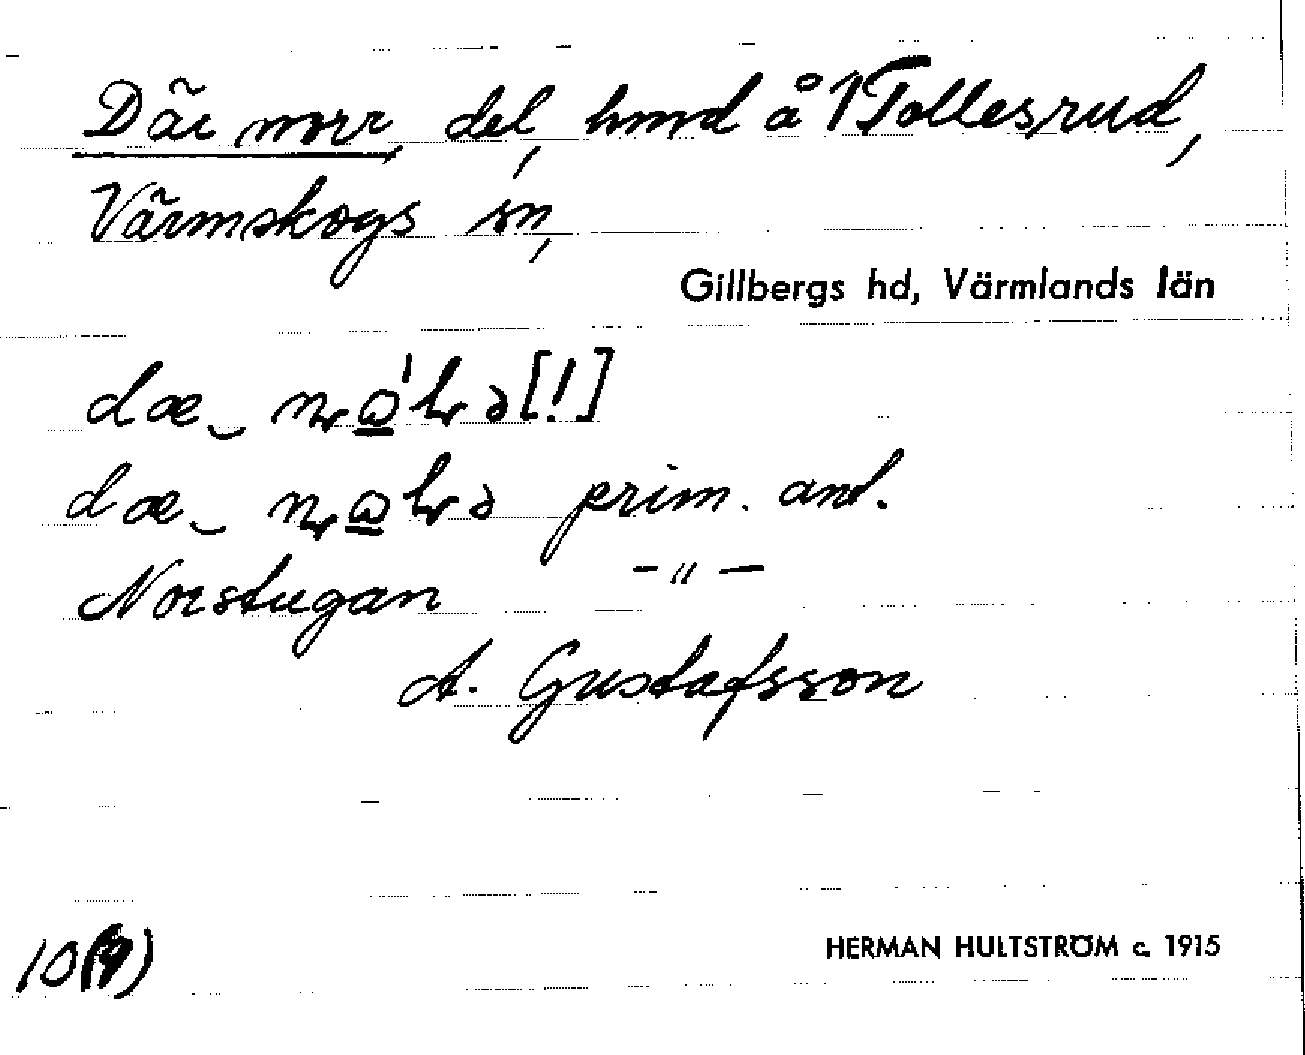 Där norr, del, hmd å 1 Tollesrud,
Värmskogs sn,
Gillbergs hd, Värmlands län
Norstugan —"—
prim. ant.
A. Gustafsson
10(9)
HERMAN HULTSTRÖM c. 1915